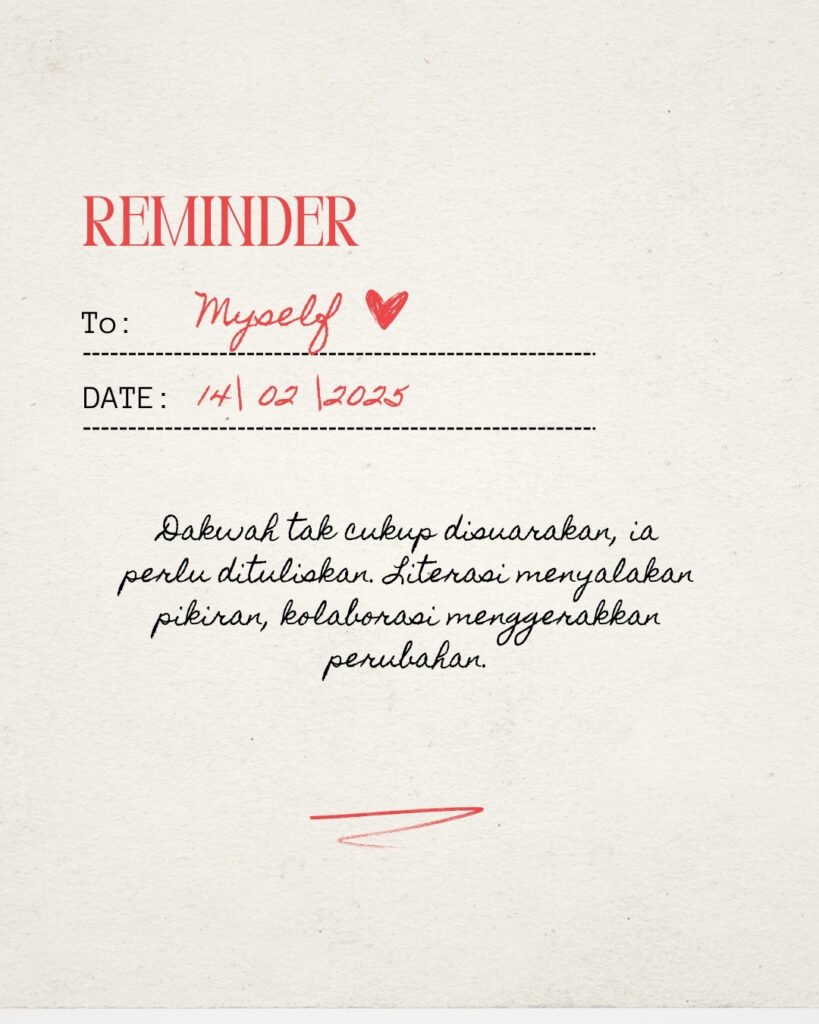 REMINDER
To: Myself
DATE: 14| 02 |2025
Dakwah tak cukup disuarakan, ia
perlu dituliskan. Literasi menyalakan
pikiran, kolaborasi menggerakkan
perubahan.